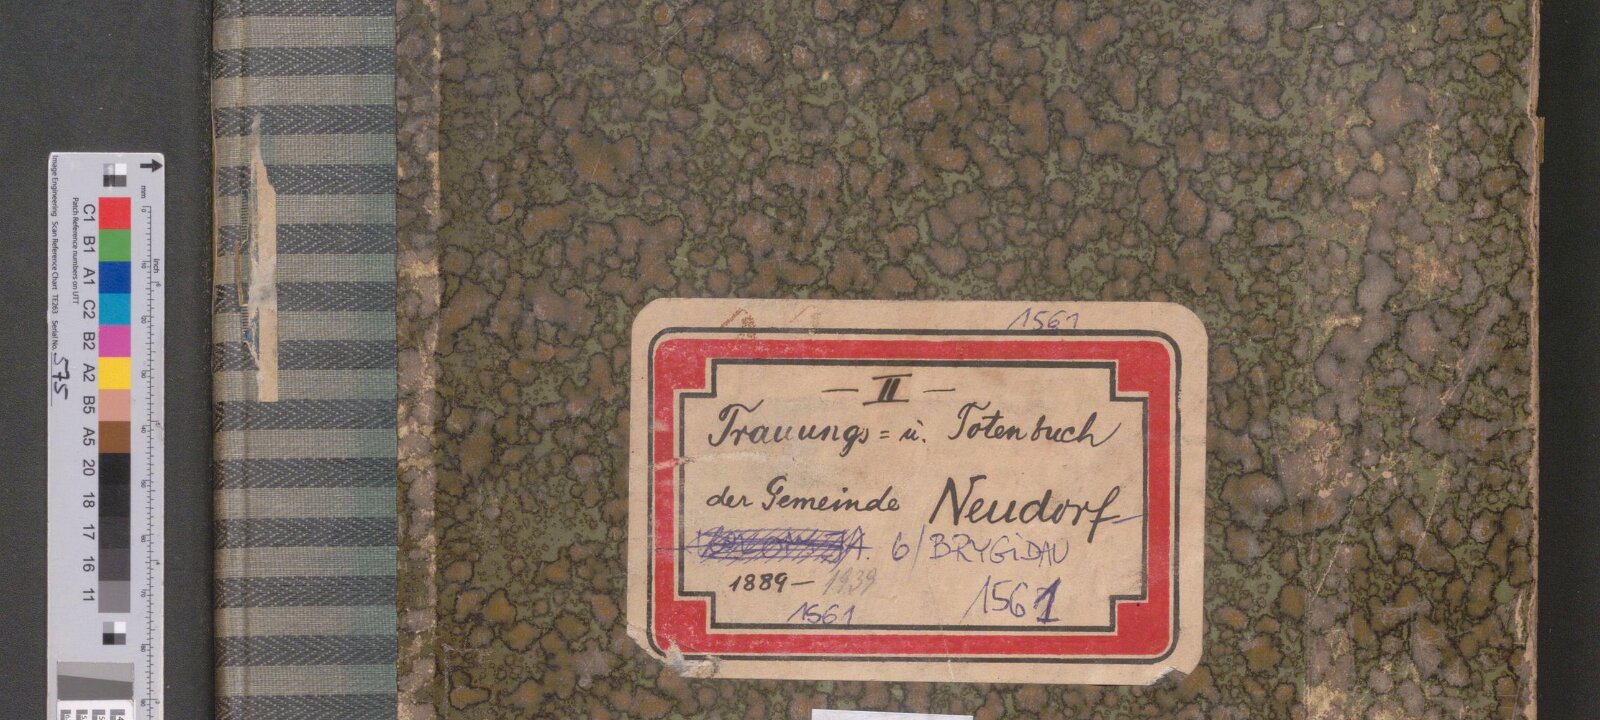 1561
— II —
Trauungs = u. Totenbuch
der Gemeinde Neudorf
6/ BRYGiDAU
1889 — 1939
1561 1561
Image Engineering Scan Reference Chart TE263 Serial No. 575
Patch Reference numbers on UTT
mm
inch
C1 B1 A1 C2 B2 A2 B5 A5 20 18 17 16 11